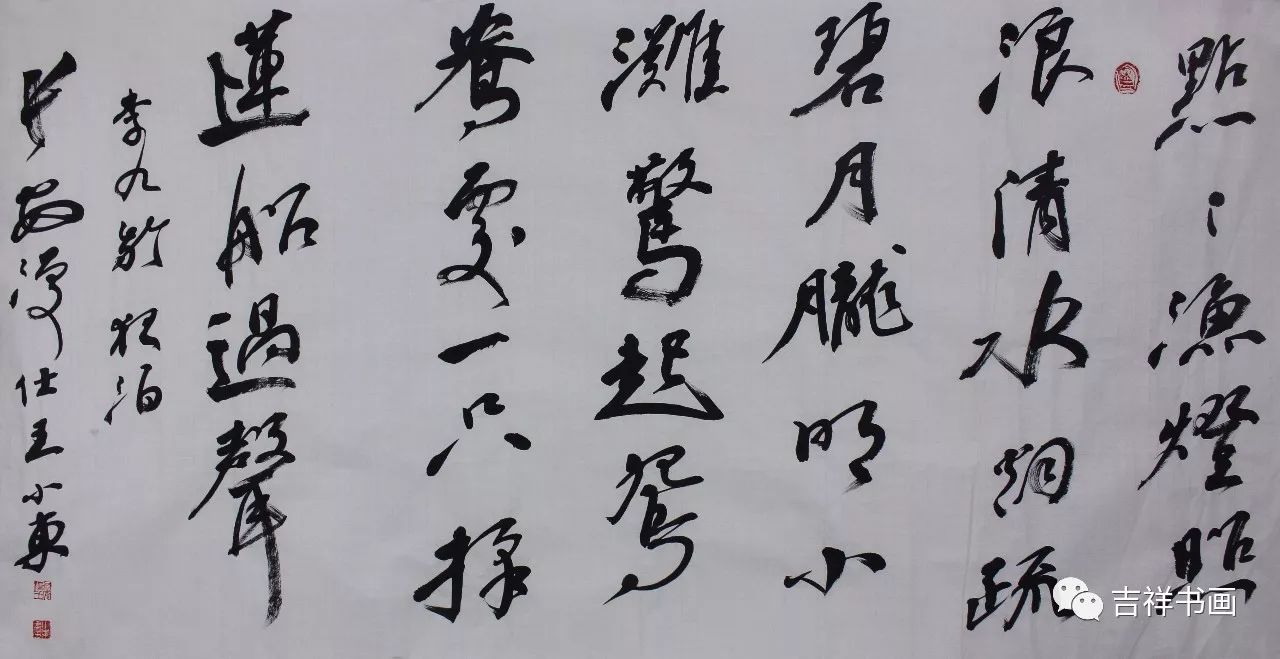 點〻漁燈照
浪清水烟疏
碧月朧明小
灘驚起鴛
鴦處一只採
蓮船過聲
李九齡 夜泊
長安漫仕王小東
吉祥书画